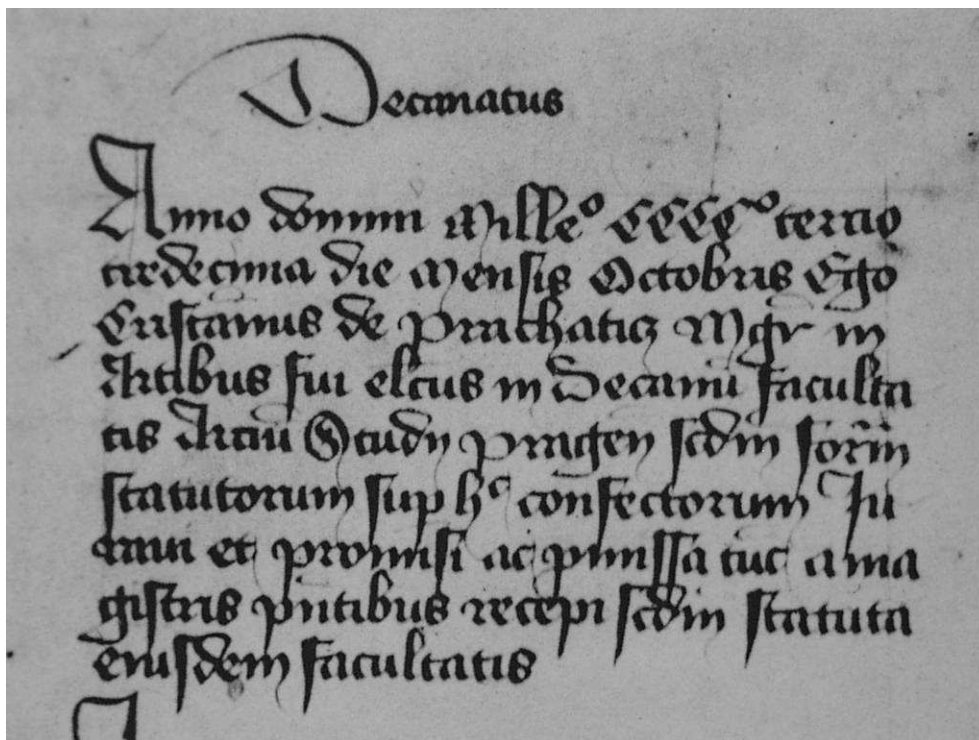 Decanatus
Anno domini Mille° CCCC° tercio
tredecima die Mensis Octobris Ego
Cristannus de prachaticz Mgr in
Artibus fui elcus in Decanū faculta
tis Arciū Studij pragen scdm formā
statutorum sup hoc confectorum Iu
raui et promisi ac pmissa tūc a ma
gistris pntibus recepi scdm statuta
eiusdem facultatis